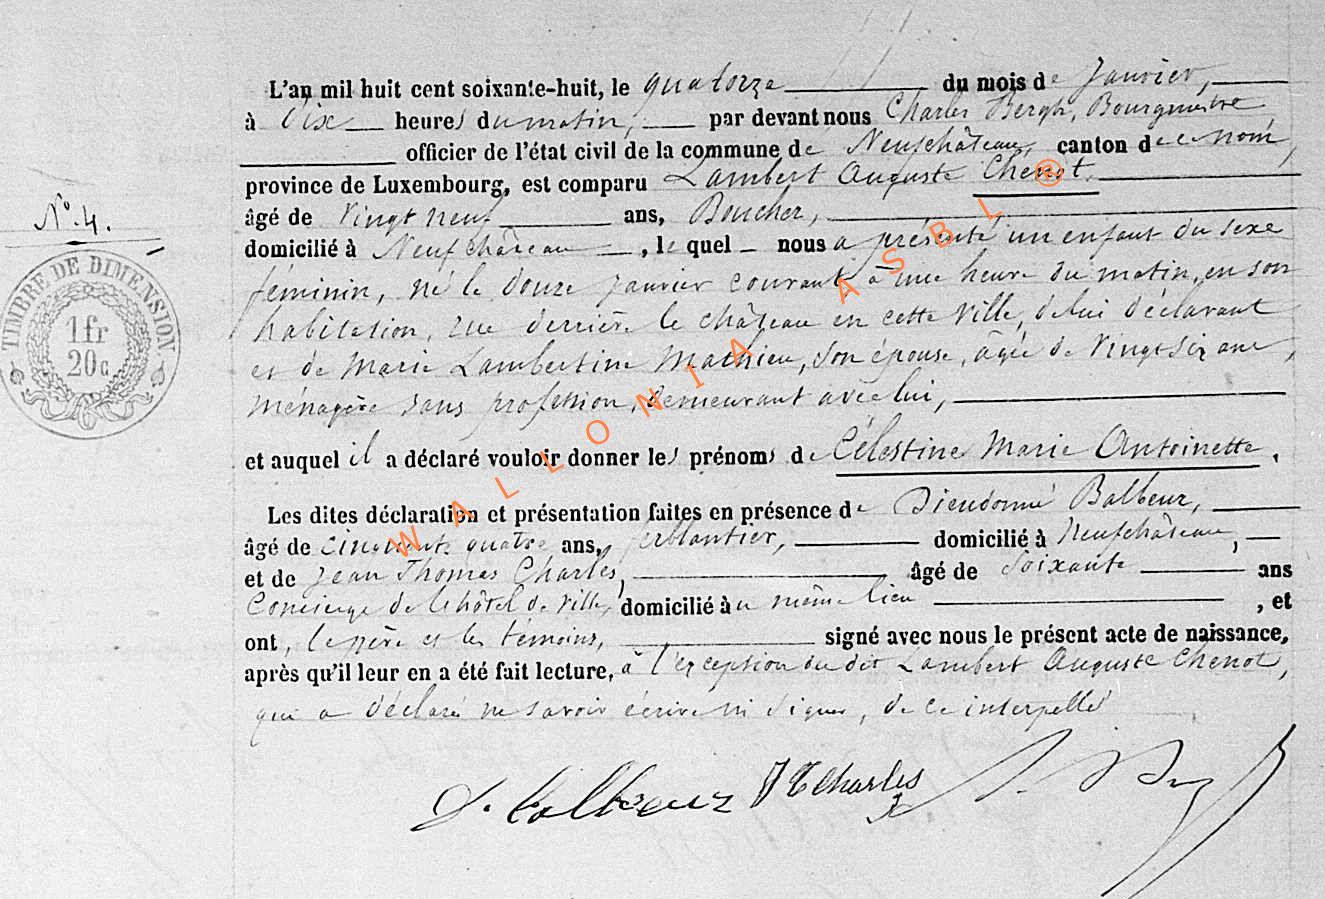 L'an mil huit cent soixante-huit, le quatorze du mois de Janvier,
à Dix heures du matin, par devant nous Charles Bergh, Bourgmestre
officier de l'état civil de la commune de Neufchâteau, canton de ce nom,
province de Luxembourg, est comparu Lambert Auguste Chenot,
âgé de Vingt neuf ans, Boucher,
N°. 4.
domicilié à Neufchâteau, lequel nous a présenté un enfant du sexe
féminin, né le douze Janvier courant à une heure du matin, en son
habitation, rue derrière le château en cette ville, de lui déclarant
et de Marie Lambertine Mathieu, son épouse, agée de Vingt six ans,
ménagère sans profession, demeurant avec lui,
TIMBRE DE DIMENSION.
1fr
20c.
et auquel il a déclaré vouloir donner les prénoms de Célestine Marie Antoinette.
Les dites déclaration et présentation faites en présence de Dieudonné Balbeur,
âgé de cinquante quatre ans, ferblantier, domicilié à Neufchâteau,
et de Jean Thomas Charles, âgé de Soixante ans
Concierge de l'hôtel de Ville, domicilié au même lieu, et
ont, le père et les témoins, signé avec nous le présent acte de naissance,
après qu'il leur en a été fait lecture, à l'exception du dit Lambert Auguste Chenot,
qui a déclaré ne savoir écrire ni signer, de ce interpellé
D. Balbeur JT Charles
WALLONIA ASBL ®